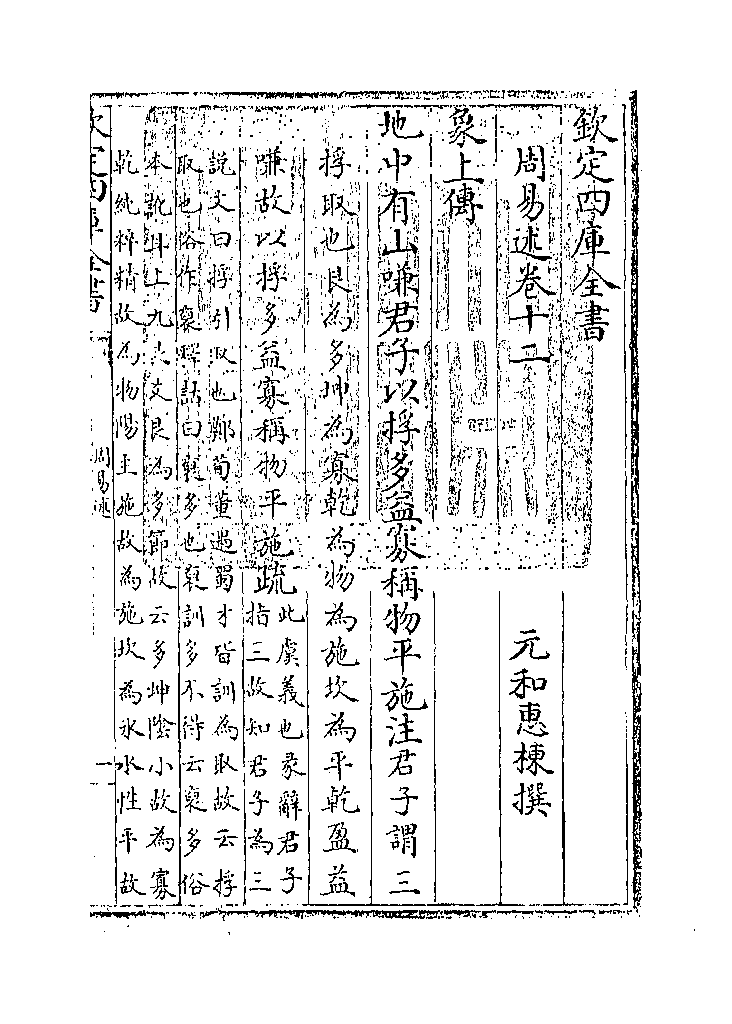 欽定四庫全書
周易述卷十二
元和惠棟撰
象上傳
地中有山嗛君子以捊多益寡稱物平施注君子謂三
捊取也艮為多坤為寡乾為物為施坎為平乾盈益
嗛故以捊多益寡稱物平施疏此虞義也彖辭君子
指三故知君子為三
說文曰捊引取也鄭荀董遇蜀才皆訓為取故云捊
取也俗作裒釋詁曰裒多也裒訓多不得云裒多俗
本訛耳上九爻艮為多節故云多坤陰小故為寡
乾純粹精故為物陽主施故為施坎為水水性平故
欽定四庫全書
周易述
一